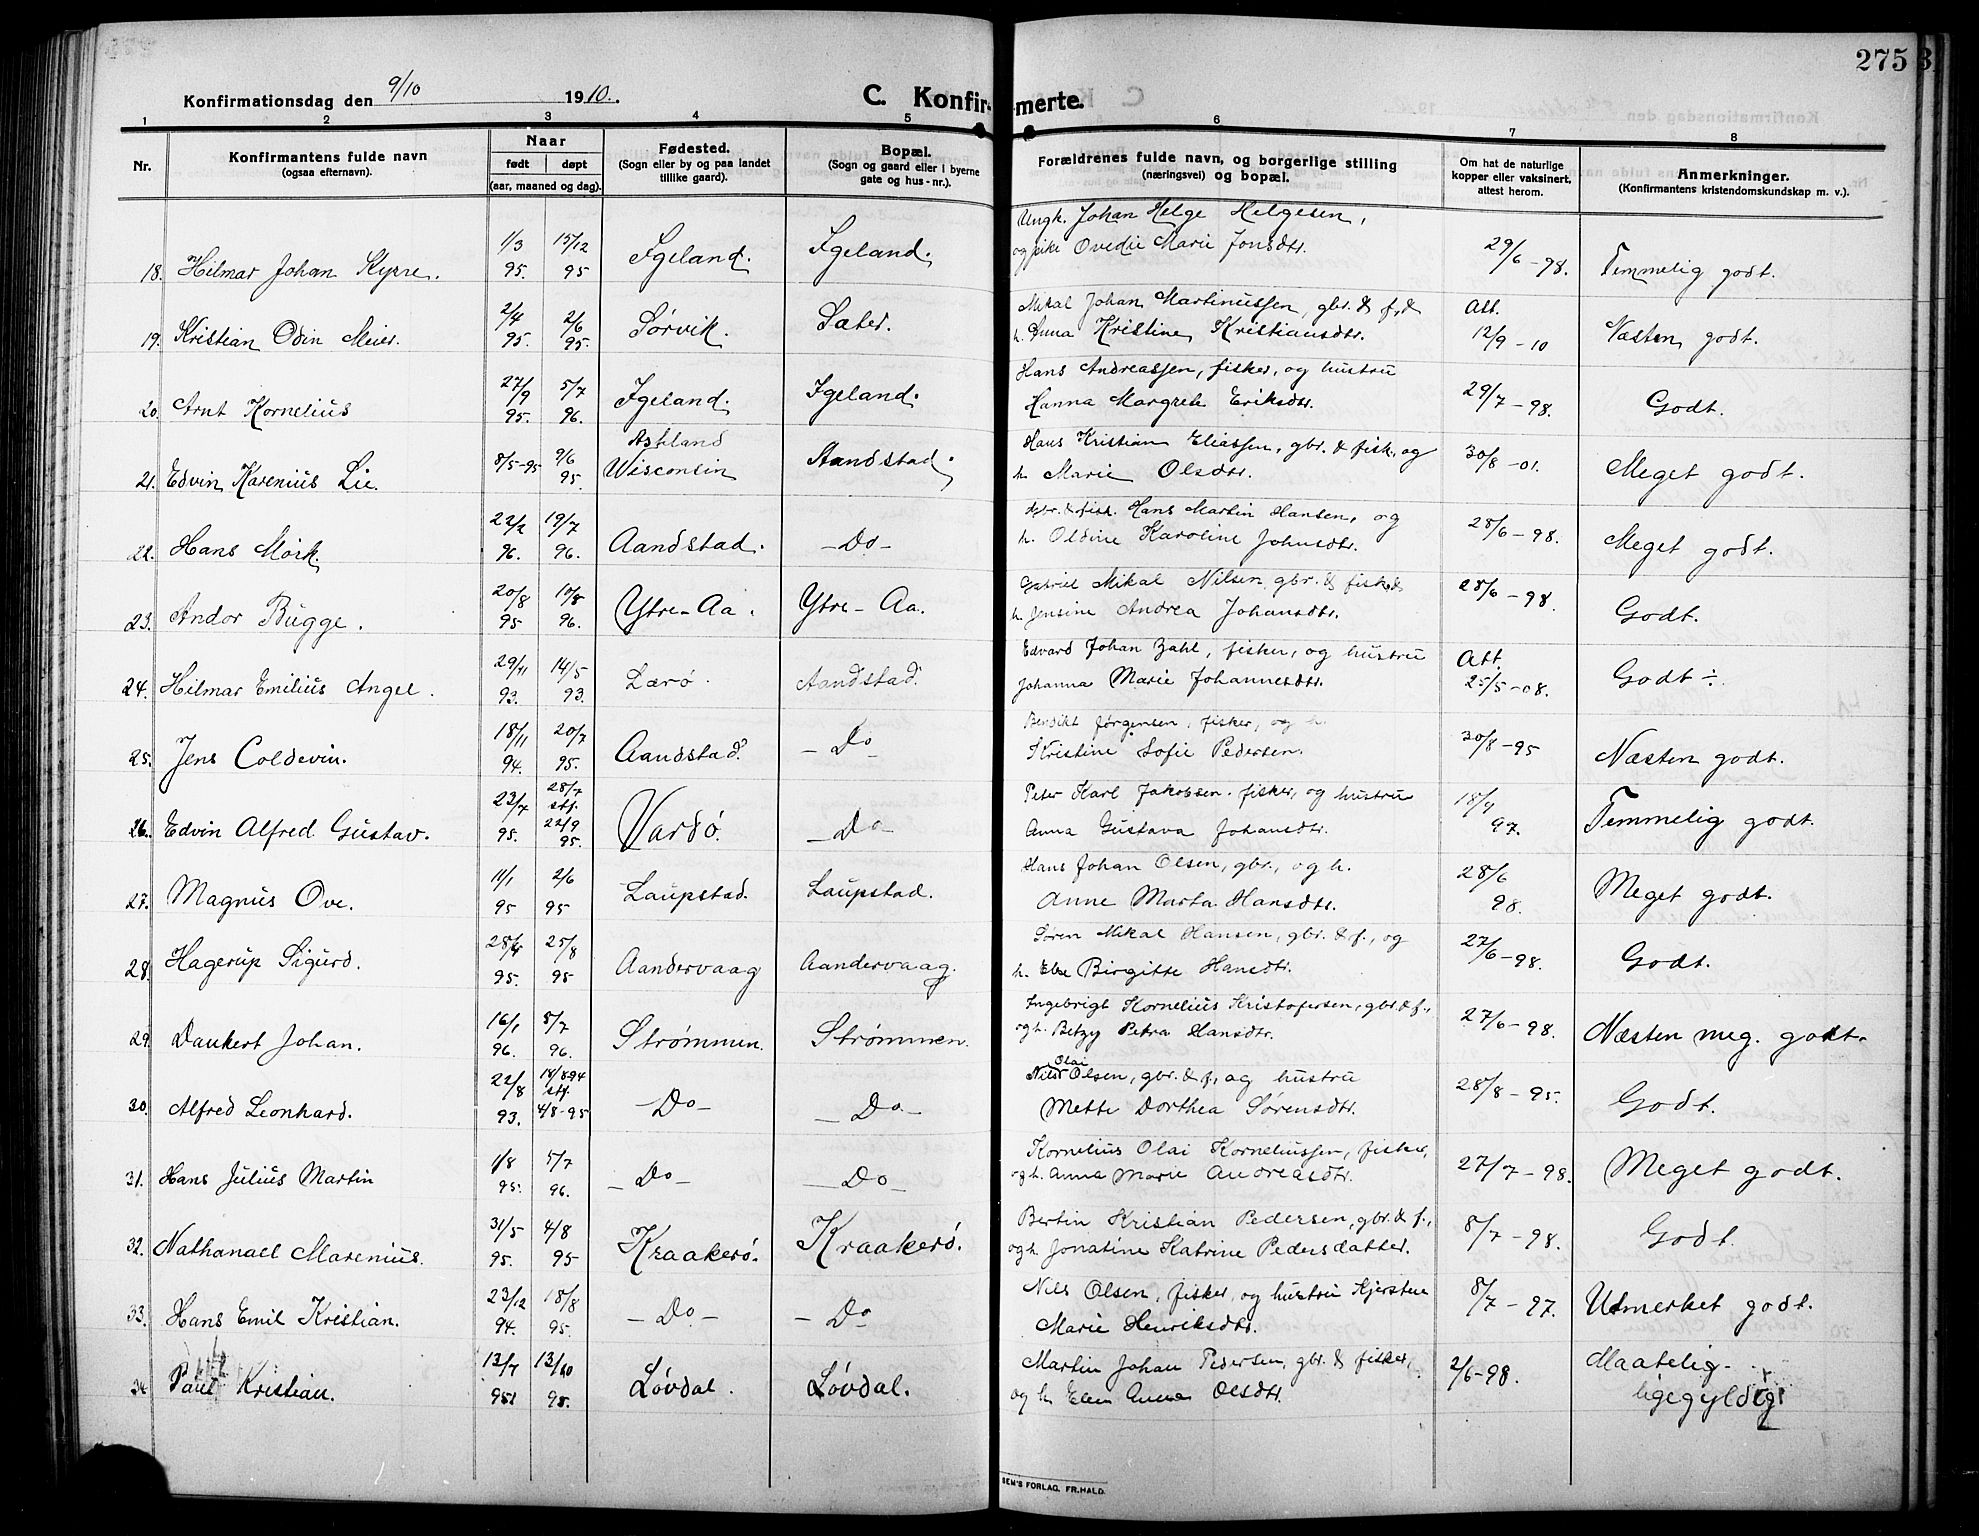 275
Konfirmationsdag den 9/10 1910. C. Konfirmerte.
1 2 3 4 5 6 7 8
Nr.
Konfirmantens fulde navn
(ogsaa efternavn).
Naar
født døpt
(aar, maaned og dag).
Fødested.
(Sogn eller by og paa landet
tillike gaard).
Bopæl.
(Sogn og gaard eller i byerne
gate og hus-nr.).
Forældrenes fulde navn, og borgerlige stilling
(næringsvei) og bopæl.
Om hat de naturlige
kopper eller vaksinert,
attest herom.
Anmerkninger.
(Konfirmantens kristendomskundskap m. v.).
18. Hilmar Johan Kyrre. 1/3 95. 15/12 95 Igeland. Igeland. Ungk. Johan Helge Helgesen,
og pike Ovedie Marie Jonsdtr. 29/6-98. Temmelig godt.
19. Kristian Odin Meier. 2/4 95. 2/6 95. Sørvik. Sæter. Mikal Johan Martinussen, gbr. & f., &
h. Anna Kristine Kristiansdtr. Att. 12/9-10 Næsten godt.
20. Arnt Kornelius 27/9 95. 5/7 96. Igeland. Igeland. Hans Andreassen, fisker, og hustru
Hanna Margrete Eriksdtr. 29/7-98. Godt.
21. Edvin Karenius Lie. 8/5-95 9/6 95. Ashland Wisconsin Aandstad. Hans Kristian Eliassen, gbr. & fisk., og
h. Marie Olsdtr. 30/8-01. Meget godt.
22. Hans Mørk. 22/2 96. 19/7 96. Aandstad. -Do- gbr. & fisk. Hans Martin Hansen, og
h. Oldine Karoline Johnsdtr. 28/6-98. Meget godt.
23. Andor Bugge. 20/8 95 10/8 96. Ytre-Aa. Ytre-Aa. Gabriel Mikal Nilsen gbr. & fisk, &
h. Jensine Andrea Johansdtr. 28/6-98. Godt.
24. Hilmar Emilius Angel. 29/11 93. 14/5 93. Lærø. Aandstad. Edvard Johan Zahl, fisker, og hustru
Johanna Marie Johannesdtr. Att. 25/5-08. Godt ÷.
25. Jens Coldevin. 18/11 94. 20/7 95. Aandstad. - Do - Bendikt Jørgensen, fisker, og h.
Kristine Sofie Pedersen. 30/8-95 Næsten godt.
26. Edvin Alfred Gustav. 23/7 95. 28/7 stf. 22/9 95. Vardø. - Do - Peter Karl Jakobsen. fisker, og hustru
Anna Gustava Johansdtr. 18/9 97. Temmelig godt.
27. Magnus Ove. 11/1 95 2/6 95 Laupstad. Laupstad. Hans Johan Olsen, gbr., og h.
Anne Marta Hansdtr. 28/6 98. Meget godt.
28. Hagerup Sigurd. 28/4 95. 25/8 95 Aandervaag Aandervaag. Søren Mikal Hansen, gbr. & f., og
h. Else Birgitte Hansdtr. 27/6-98. Godt.
29. Dankert Johan. 16/1 96. 5/7 96. Strømmen. Strømmen. Ingebrigt Kornelius Kristofersen, gbr. & f.,
og h. Betzy Petra Hansdtr. 27/6-98. Næsten meg. godt.
30. Alfred Leonhard. 22/8 93. 18/8 94 stf. 4/8-95 -Do- -Do- Nils Olai Olsen, gbr. & f., og hustru
Mette Dorthea Sørensdtr. 28/8-95. Godt.
31. Hans Julius Martin 1/8 95. 5/7 96. -Do- -Do- Kornelius Olai Korneliussen, fisker,
og h. Anna Marie Andreasdtr. 27/7-98. Meget godt.
32. Nathanael Marenius. 31/5 95. 4/8 95 Kraakerø. Kraakerø. Bertin Kristian Pedersen, gbr. & f.,
og h. Jonatine Katrine Pedersdatter. 8/7-98. Godt.
33. Hans Emil Kristian. 23/12 94. 18/8 95. - Do - - Do Nils Olsen, fisker, og hustru Kjerstine
Marie Henriksdtr. 8/7-97. Utmerket godt.
34 Paul Kristian. 13/7 95 13/10 95. Løvdal. Løvdal. Martin Johan Pedersen, gbr. & fisker,
og h. Elen Anna Olsdtr. 2/6-98. Maatelig-
ligegyldig
SEM'S FORLAG, FR.HALD.